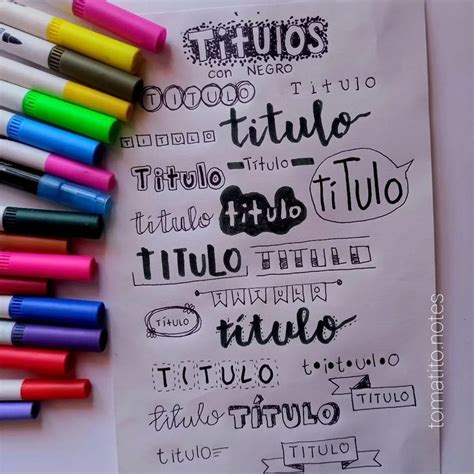 TíTUlOS
con NEGRO
TITULO
TITULO
TITULO
titulo
-Título-
Titulo
tiTULO
título
titulo
TITULO
TITULO
TÍTULO
TÍTULO
título
TITULO
t•i•t•u•l•o
TITULO
título
TÍTULO
titulo
TITULO
tomatito.notes